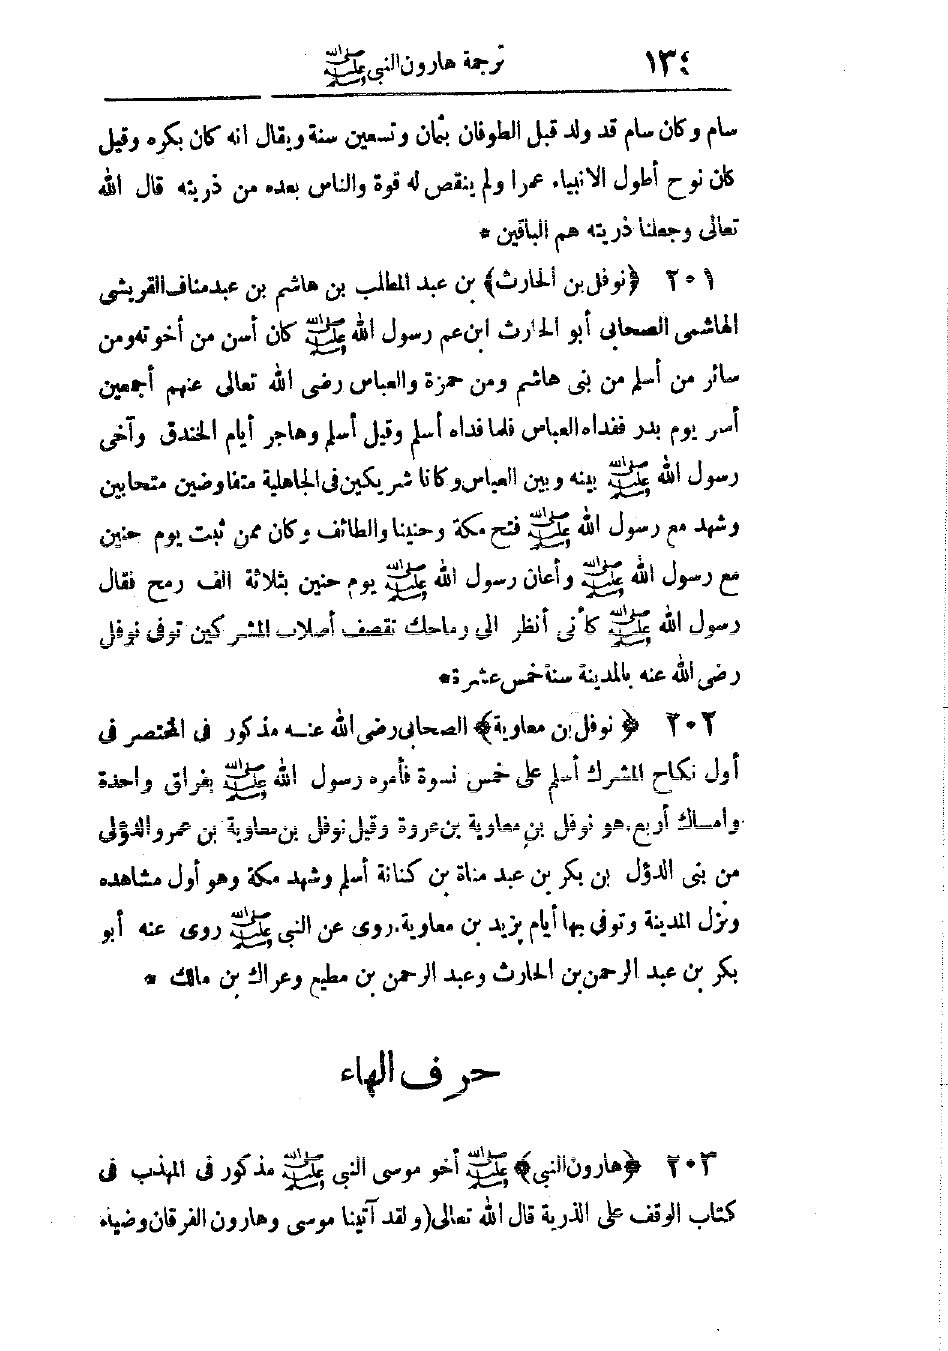 ١٣٤ ترجمة هارون النبي ﷺ
سام وكان سام قد ولد قبل الطوفان بثمان وتسعين سنة ويقال انه كان بكره وقيل
كان نوح أطول الانبياء عمرا ولم ينقص له قوة والناس بعده من ذريته قال الله
تعالى وجعلنا ذريته هم الباقين *
٢٠١ ﴿نوفل بن الحارث﴾ بن عبد المطلب بن هاشم بن عبد مناف القريشى
الهاشمى الصحابى أبو الحارث ابن عم رسول الله ﷺ كان أسن من أخوته ومن
سائر من أسلم من بنى هاشم ومن حمزة والعباس رضى الله تعالى عنهم أجمعين
أسر يوم بدر ففداه العباس فلما فداه أسلم وقيل أسلم وهاجر أيام الخندق وآخى
رسول الله ﷺ بينه وبين العباس وكانا شريكين فى الجاهلية متفاوضين متحابين
وشهد مع رسول الله ﷺ فتح مكة وحنينا والطائف وكان ممن ثبت يوم حنين
مع رسول الله ﷺ وأعان رسول الله ﷺ يوم حنين بثلاثة الف رمح فقال
رسول الله ﷺ كأنى أنظر الى رماحك تقصف أصلاب المشركين توفى نوفل
رضى الله عنه بالمدينة سنة خمس عشرة *
٢٠٢ ﴿نوفل بن معاوية﴾ الصحابى رضى الله عنه مذكور فى المختصر فى
أول نكاح المشرك أسلم على خمس نسوة فأمره رسول الله ﷺ بفراق واحدة
وامساك أربع. هو نوفل بن معاوية بن عروة وقيل نوفل بن معاوية بن عمرو الدؤلى
من بنى الدؤل بن بكر بن عبد مناة بن كنانة أسلم وشهد مكة وهو أول مشاهده
ونزل المدينة وتوفى بها أيام يزيد بن معاوية. روى عن النبى ﷺ روى عنه أبو
بكر بن عبد الرحمن بن الحارث وعبد الرحمن بن مطيع وعراك بن مالك *
حرف الهاء
٢٠٣ ﴿هارون النبى﴾ ﷺ أخو موسى النبى ﷺ مذكور فى المهذب فى
كتاب الوقف على الذرية قال الله تعالى (ولقد آتينا موسى وهارون الفرقان وضياء